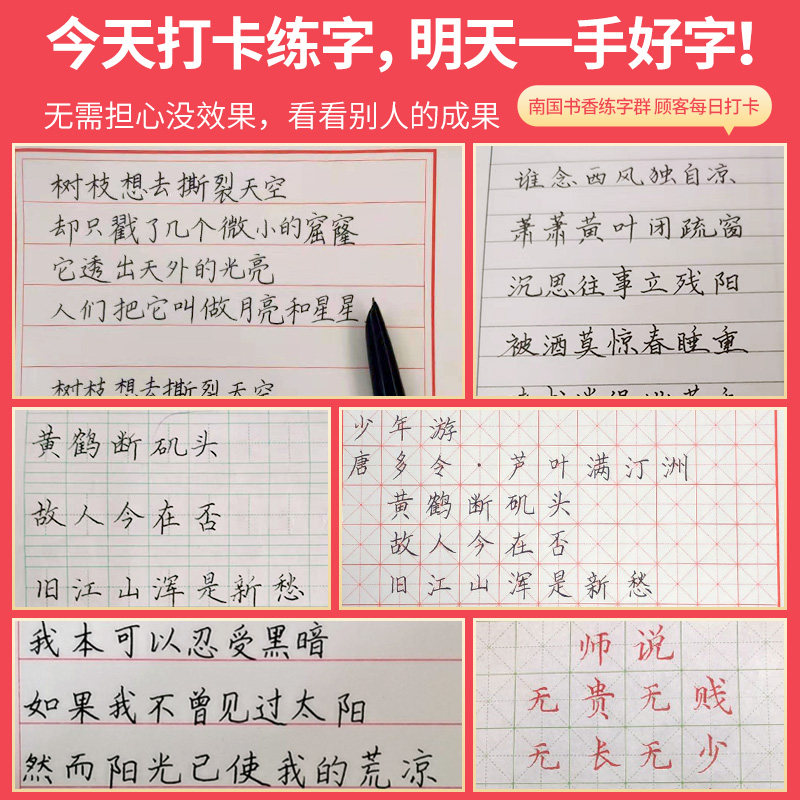 今天打卡练字，明天一手好字!
无需担心没效果，看看别人的成果
南国书香练字群 顾客每日打卡
树枝想去撕裂天空
却只戳了几个微小的窟窿
它透出天外的光亮
人们把它叫做月亮和星星
树枝想去撕裂天空
谁念西风独自凉
萧萧黄叶闭疏窗
沉思往事立残阳
被酒莫惊春睡重
黄鹤断矶头
故人今在否
旧江山浑是新愁
少年游
唐多令·芦叶满汀洲
黄鹤断矶头
故人今在否
旧江山浑是新愁
我本可以忍受黑暗
如果我不曾见过太阳
然而阳光已使我的荒凉
师说
无贵无贱
无长无少